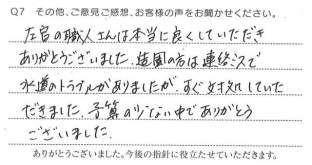 Q7 その他、ご意見ご感想、お客様の声をお聞かせください。
左官の職人さんは本当に良くしていただき
ありがとうございました。造園の方は連絡ミスで
水道のトラブルがありましたが、すぐ対処していた
だきました。予算の少ない中でありがとう
ございました。
ありがとうございました。今後の指針に役立たせていただきます。